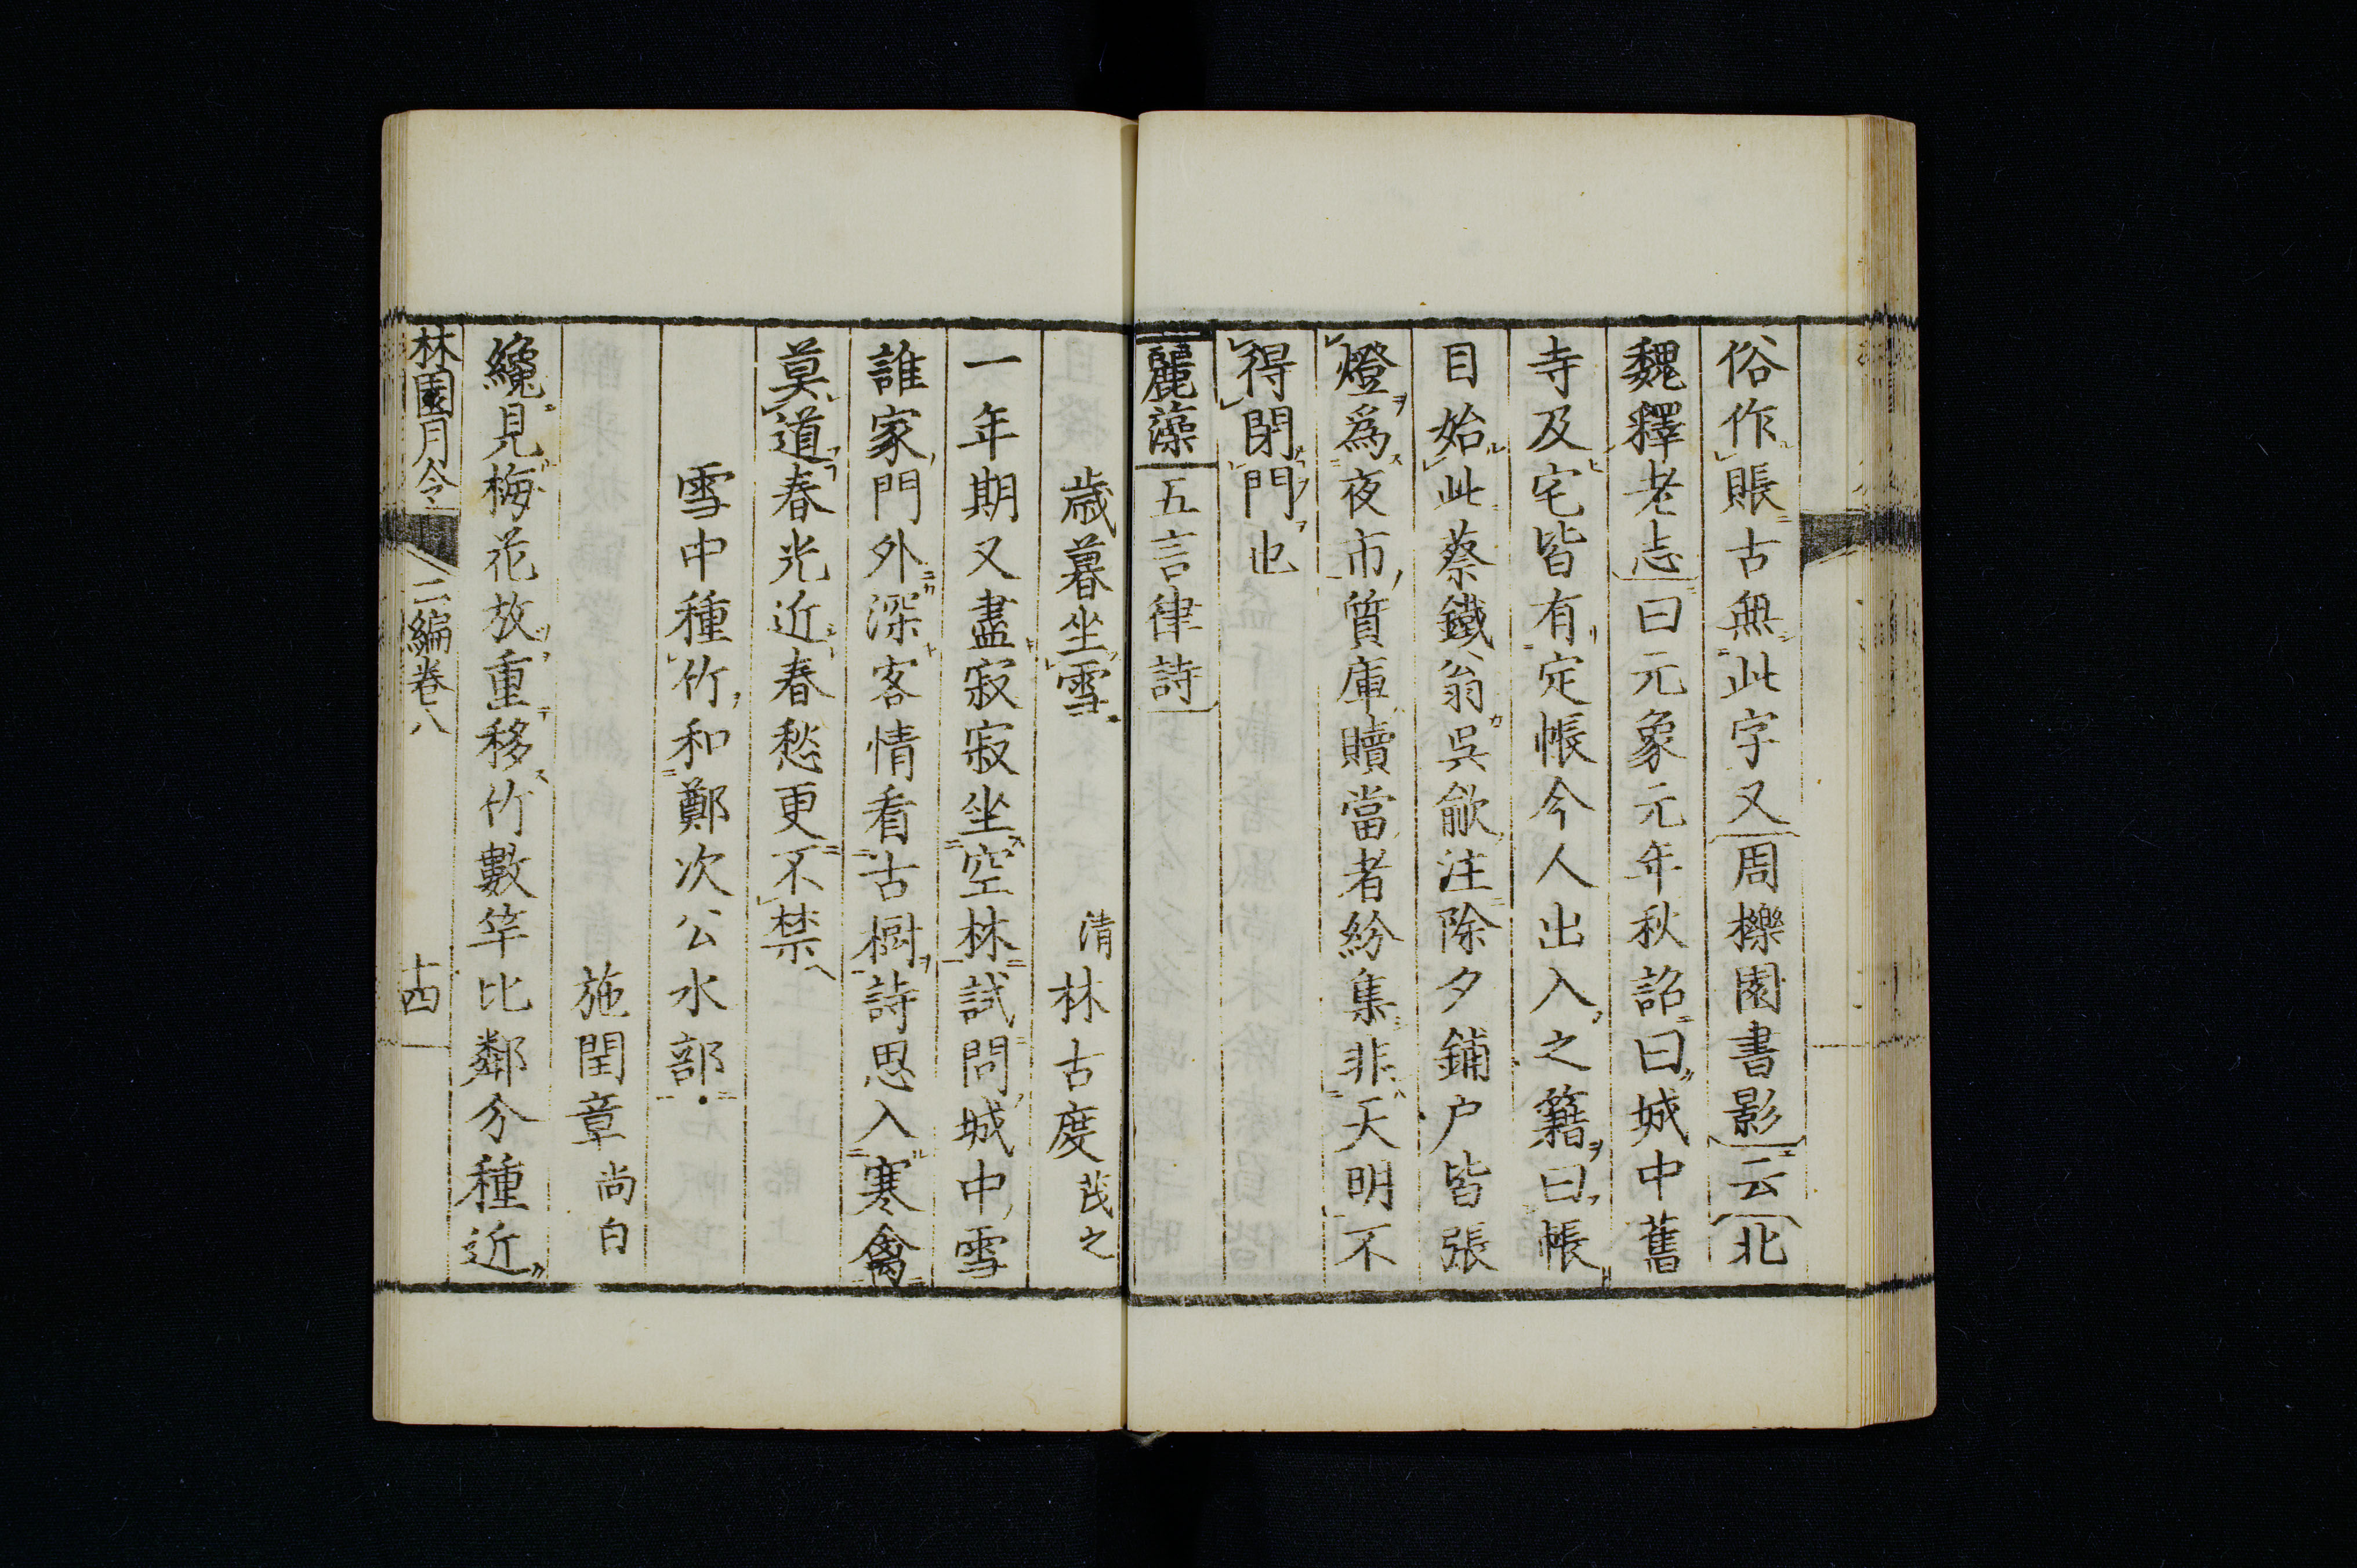 俗作賬古無此字又周櫟園書影云北
魏釋老志曰元象元年秋詔曰城中舊
寺及宅皆有定帳今人出入之籍曰帳
目始此蔡鐵翁呉歈注除夕鋪户皆張
燈爲夜市質庫贖當者紛集非天明不
得閉門也
麗藻 五言律詩
歳暮坐雪 清林古度茂之
一年期又盡寂寂坐空林試問城中雪
誰家門外深客情看古樹詩思入寒禽
莫道春光近春愁更不禁
雪中種竹和鄭次公水部
施閏章尚白
纔見梅花放重移竹數竿比鄰分種近
林園月令 二編卷八 十四